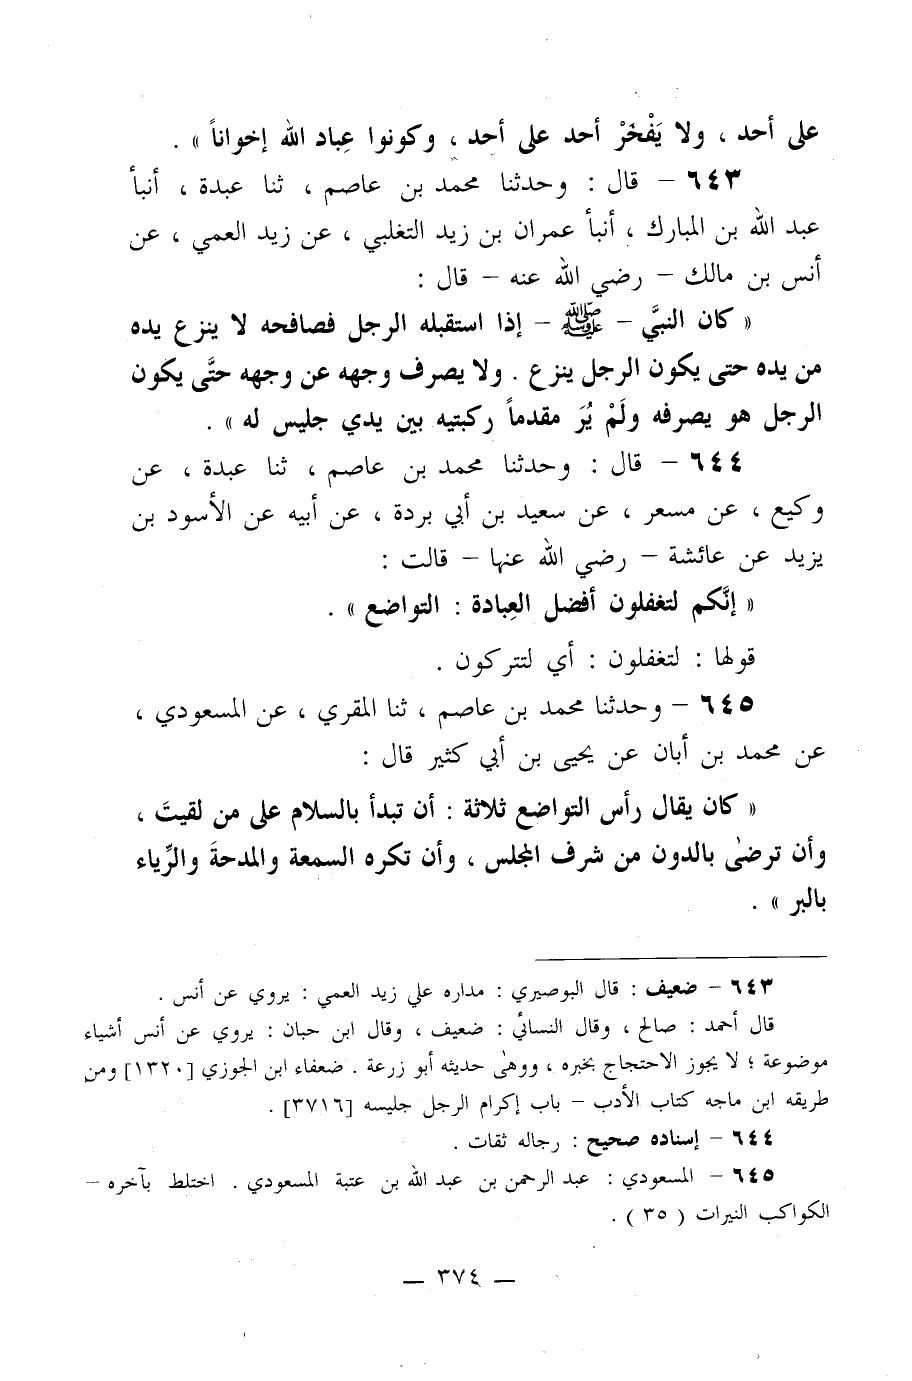 على أحد ، ولا يَفْخَرْ أحد على أحد ، وكونوا عِباد الله إخواناً » .
٦٤٣ – قال : وحدثنا محمد بن عاصم ، ثنا عبدة ، أنبأ
عبد الله بن المبارك ، أنبأ عمران بن زيد التغلبي ، عن زيد العمي ، عن
أنس بن مالك – رضي الله عنه – قال :
« كان النبيَّ – ﷺ – إذا استقبله الرجل فصافحه لا ينزع يده
من يده حتى يكون الرجل ينزع . ولا يصرف وجهه عن وجهه حتَّى يكون
الرجل هو يصرفه ولَمْ يُرَ مقدماً ركبتيه بين يدي جليس له » .
٦٤٤ – قال : وحدثنا محمد بن عاصم ، ثنا عبدة ، عن
وكيع ، عن مسعر ، عن سعيد بن أبي بردة ، عن أبيه عن الأسود بن
يزيد عن عائشة – رضي الله عنها – قالت :
« إنَّكم لتغفلون أفضل العِبادة : التواضع » .
قولها : لتغفلون : أي لتتركون .
٦٤٥ – وحدثنا محمد بن عاصم ، ثنا المقري ، عن المسعودي ،
عن محمد بن أبان عن يحيى بن أبي كثير قال :
« كان يقال رأس التواضع ثلاثة : أن تبدأ بالسلام على من لقيتَ ،
وأن ترضىٰ بالدون من شرف المجلس ، وأن تكره السمعة والمدحةَ والرِّياء
بالبر » .
٦٤٣ – ضعيف : قال البوصيري : مداره علي زيد العمي : يروي عن أنس .
قال أحمد : صالح ، وقال النسائي : ضعيف ، وقال ابن حبان : يروي عن أنس أشياء
موضوعة ؛ لا يجوز الاحتجاج بخبره ، ووهىٰ حديثه أبو زرعة . ضعفاء ابن الجوزي [١٣٢٠] ومن
طريقه ابن ماجه كتاب الأدب – باب إكرام الرجل جليسه [٣٧١٦] .
٦٤٤ – إسناده صحيح : رجاله ثقات .
٦٤٥ – المسعودي : عبد الرحمن بن عبد الله بن عتبة المسعودي . اختلط بآخره –
الكواكب النيرات ( ٣٥ ) .
– ٣٧٤ –